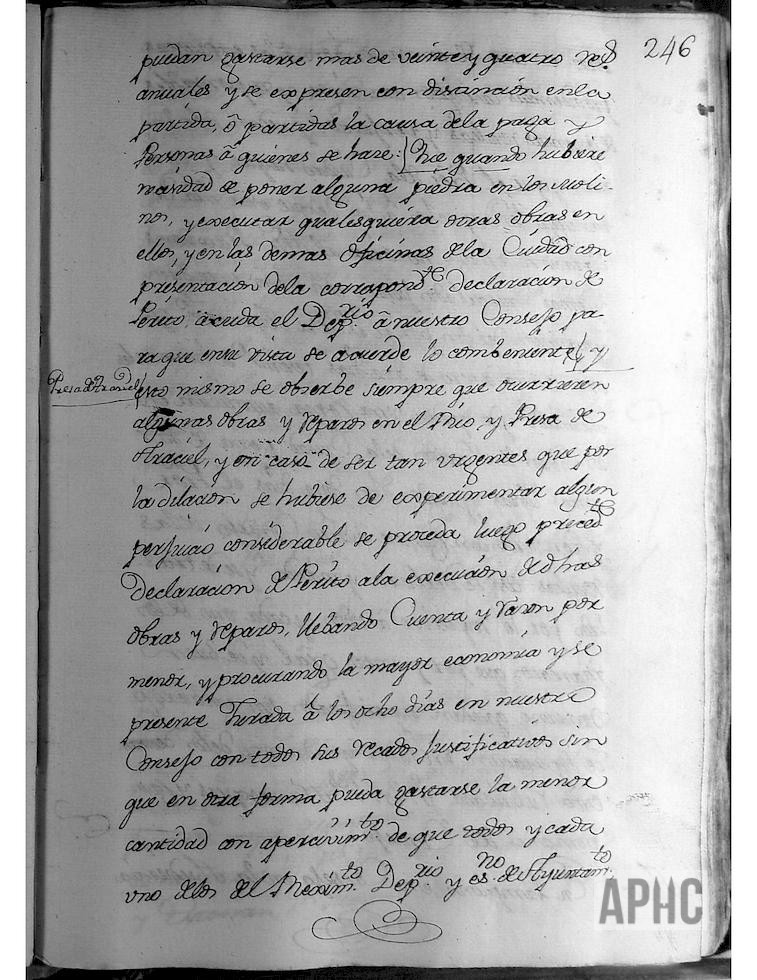 246
puedan gastarse mas de veinte y quatro rs.
anuales y se expresen con distinción en la
partida, ô partidas la causa dela paga y
Personas â quienes se haze. Que quando hubiere
necesidad de poner alguna piedra en los moli-
nos, y executar qualesquiera otras obras en
ellos, y en las demas oficinas de la Ciudad con
presentación dela correspond.te declaración de
Perito, acuda el Dep.rio â nuestro Consejo pa-
ra que en su vista se acuerde lo combeniente, y
Presa de Araciel
esto mismo se obserbe siempre que ocurrieren
algunas obras y reparos en el Rio, y Presa de
Araciel, y en caso de ser tan urgentes que por
la dilación se hubiese de experimentar algun
perjuicio considerable se proceda luego preced.te
Declaración de Perito ala execución de dhas
obras y reparos, llebando Cuenta y razon por
menor, y procurando la mayor economía y se
presente Jurada â los ocho días en nuestro
Consejo con todos sus recados justificativos sin
que en otra forma pueda gastarse la menor
cantidad con apercivim.to de que todos y cada
uno delos del Rexim.to Dep.rio y es.no de Ayuntam.to
APHC